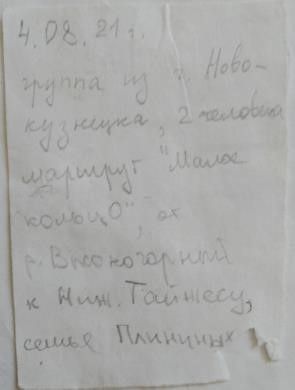 4.08.21 г.
группа из г. Ново-
кузнецка, 2 человека
маршрут "Малое
кольцо", от
р. Высокогорный
к Ниж. Тайжесу,
семья Плининых